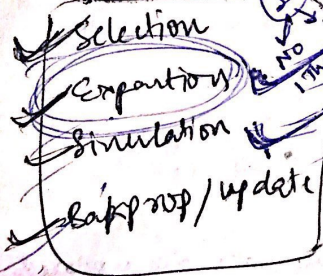 Selection
Expantion
Simulation
Backprop / update